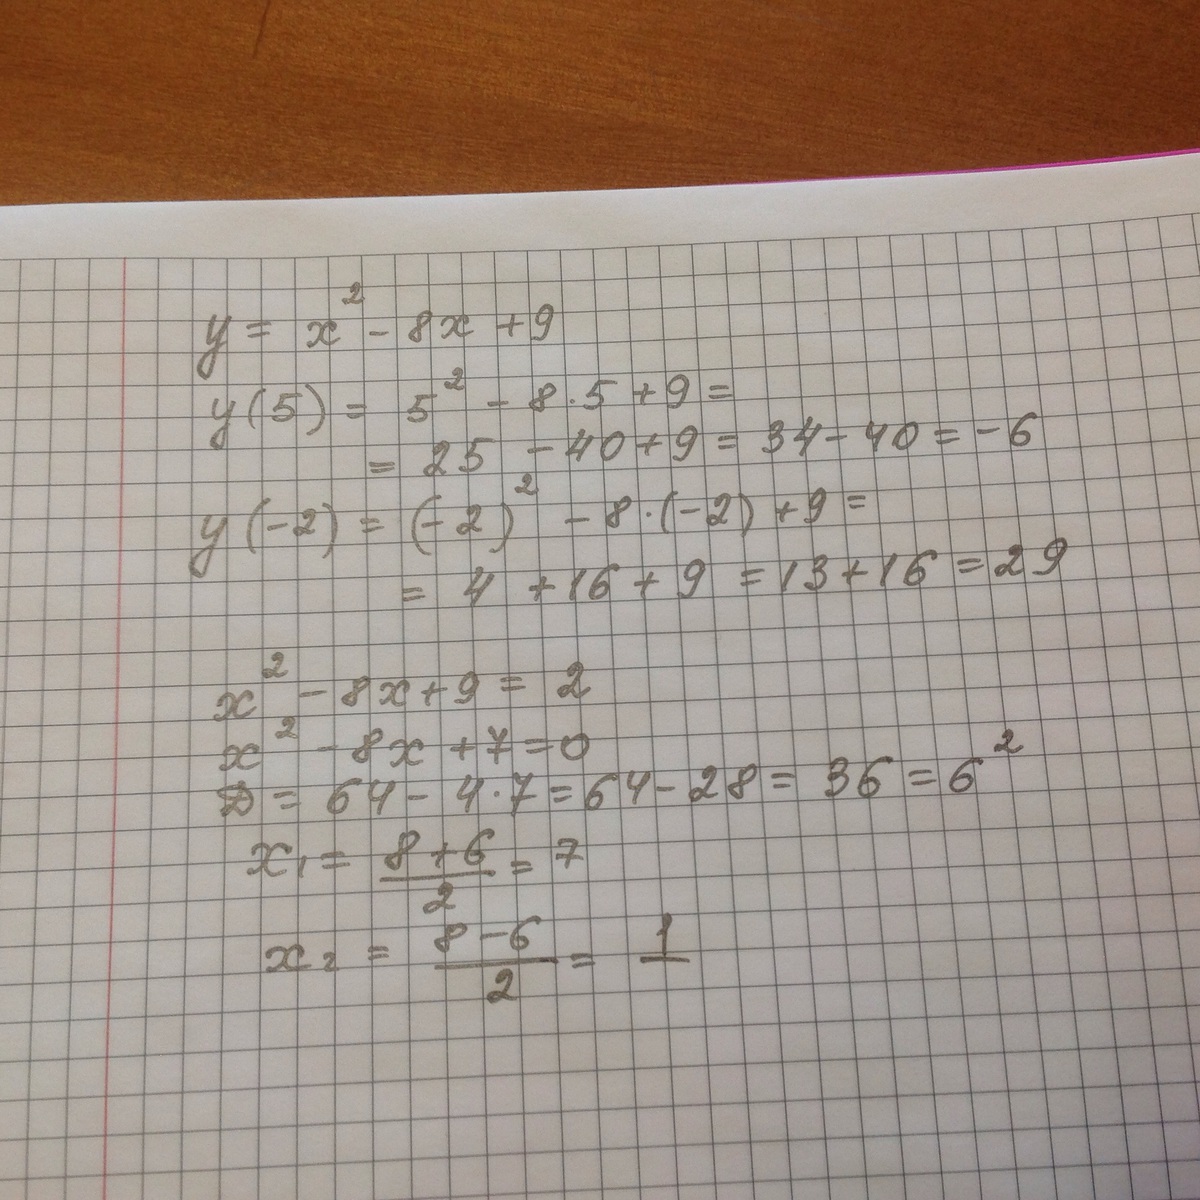 y = x² - 8x + 9
y(5) = 5² - 8·5 + 9 =
= 25 - 40 + 9 = 34 - 40 = -6
y(-2) = (-2)² - 8·(-2) + 9 =
= 4 + 16 + 9 = 13 + 16 = 29
x² - 8x + 9 = 2
x² - 8x + 7 = 0
D = 64 - 4·7 = 64 - 28 = 36 = 6²
x₁ = (8 + 6)/2 = 7
x₂ = (8 - 6)/2 = 1